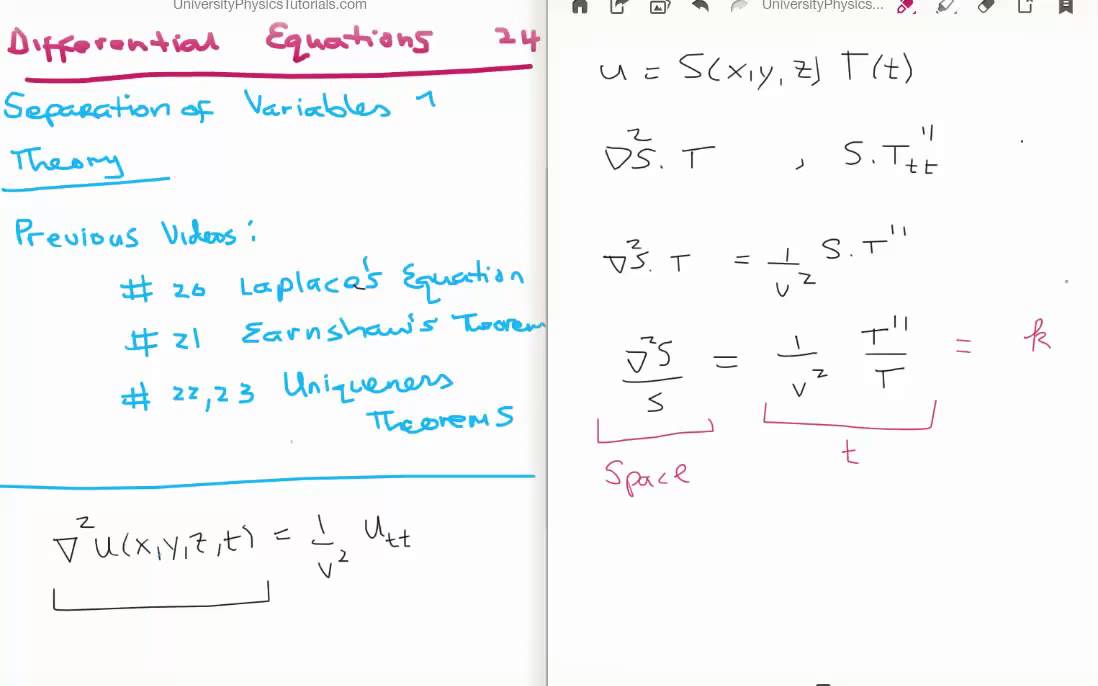 UniversityPhysicsTutorials.com
Differential Equations 24
Separation of Variables 1
Theory
Previous Videos:
# 20 Laplace's Equation
# 21 Earnshaw's Theorem
# 22,23 Uniqueness
Theorems
∇²u(x,y,z,t) = 1/v² u_tt
UniversityPhysics...
u = S(x,y,z) T(t)
∇²S. T , S.T''_tt
∇²S. T = 1/v² S.T''
∇²S/S = 1/v² T''/T = k
Space t